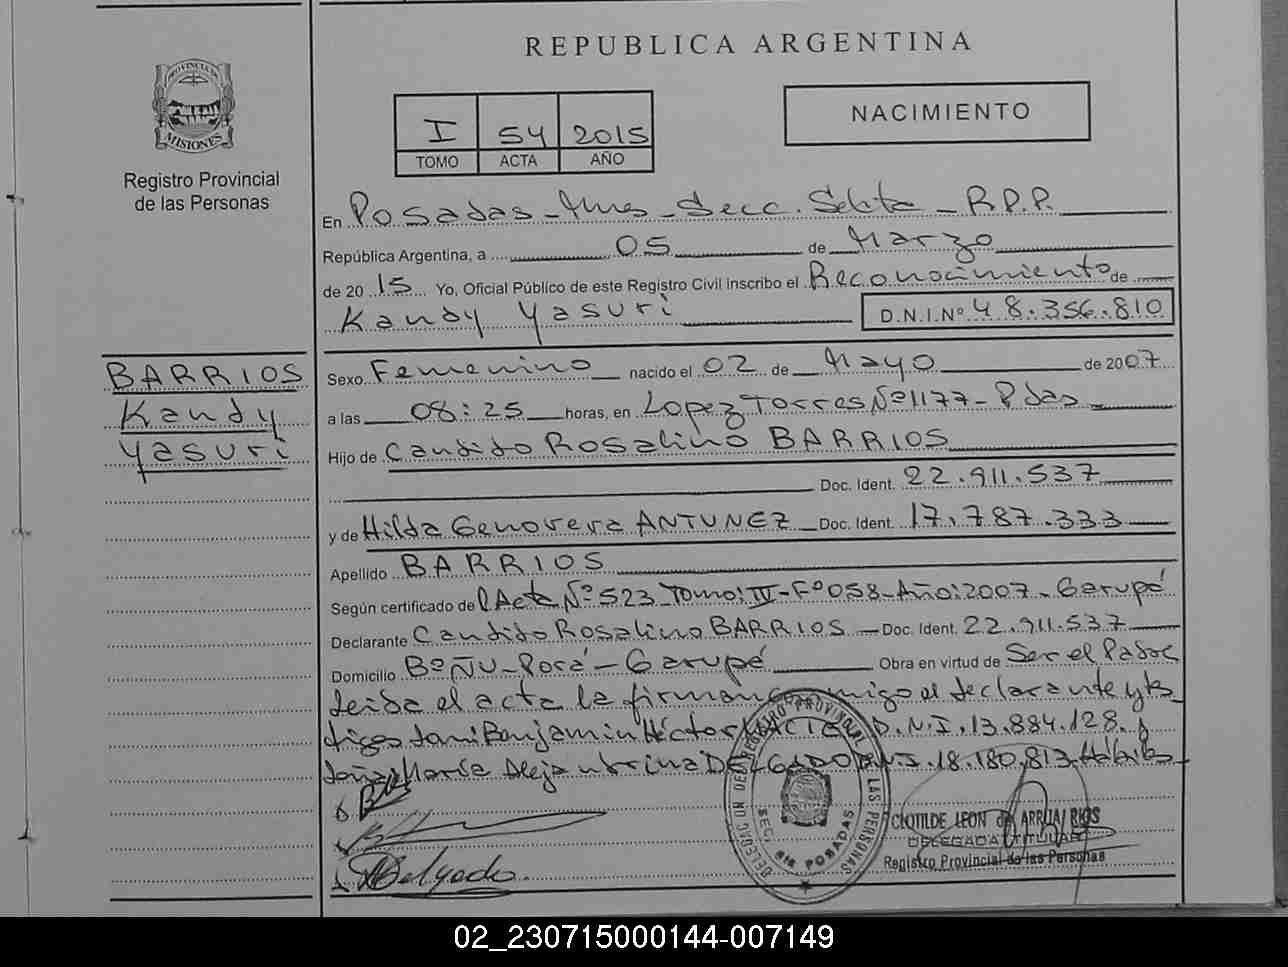 REPUBLICA ARGENTINA
PROVINCIA DE
MISIONES
Registro Provincial
de las Personas
I 54 2015
TOMO ACTA AÑO
NACIMIENTO
En Posadas - Mnes - Secc. Sexta - R.P.P.
República Argentina, a 05 de Marzo
de 2015 Yo, Oficial Público de este Registro Civil inscribo el Reconocimiento de
Kandy Yasuri D.N.I.Nº 48.356.810
BARRIOS
Kandy
Yasuri
Sexo Femenino nacido el 02 de Mayo de 2007
a las 08:25 horas, en Lopez Torres Nº 1177 - Pdas
Hijo de Candido Rosalino BARRIOS
Doc. Ident. 22.911.537
y de Hilda Genoveva ANTUNEZ Doc. Ident. 17.787.333
Apellido BARRIOS
Según certificado del Acta Nº 523 Tomo: IV - Fº 058 - Año: 2007 - Garupé
Declarante Candido Rosalino BARRIOS Doc. Ident. 22.911.537
Domicilio Bº ÑU - Porá - Garupé Obra en virtud de Ser el Padre
Leida el acta la firman conmigo el declarante y tes
tigos Benjamin Héctor D.N.I. 13.884.128. y
doña María Alejandrina DELGADO D.N.I. 18.180.813. Hábiles
Delgado
DELEGACION DEL REGISTRO PROVINCIAL DE LAS PERSONAS
SEC. 6ta POSADAS
CLOTILDE LEON de ARRUA RIOS
DELEGADA TITULAR
Registro Provincial de las Personas
02_230715000144-007149